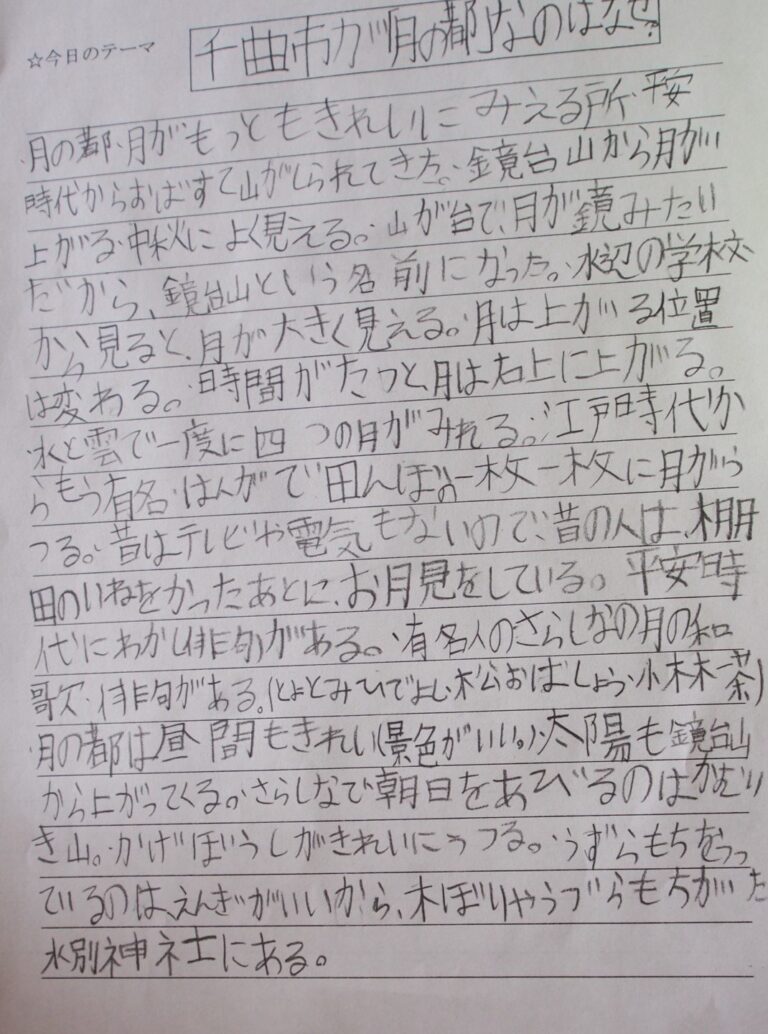 ☆今日のテーマ
千曲市が「月の都」なのはなぜ?
・月の都・月がもっともきれいにみえる所・平安
時代からおばすて山がしられてきた。・鏡台山から月が
上がる・中秋によく見える。・山が台で、月が鏡みたい
だから、鏡台山という名前になった。・水辺の学校
から見ると、月が大きく見える。・月は上がる位置
は変わる。・時間がたつと月は右上に上がる。
・水と雲で一度に四つの月がみれる。・江戸時代か
らもう有名・はんがで田んぼの一枚一枚に月がう
つる。・昔はテレビや電気もないので、昔の人は、棚
田のいねをかったあとに、お月見をしている。・平安時
代にわか(俳句)がある。・有名人のさらしなの月の和
歌・俳句がある。(とよとみひでよし・松おばしょう・小林一茶)
・月の都は昼間もきれい(景色がいい。)・太陽も鏡台山
から上がってくる。・さらしなで朝日をあびるのは、かむり
き山。・かげぼうしがきれいにうつる。・うずらもちをうっ
ているのは、えんぎがいいから、木ぼりやうづらもちがた
水別神社にある。